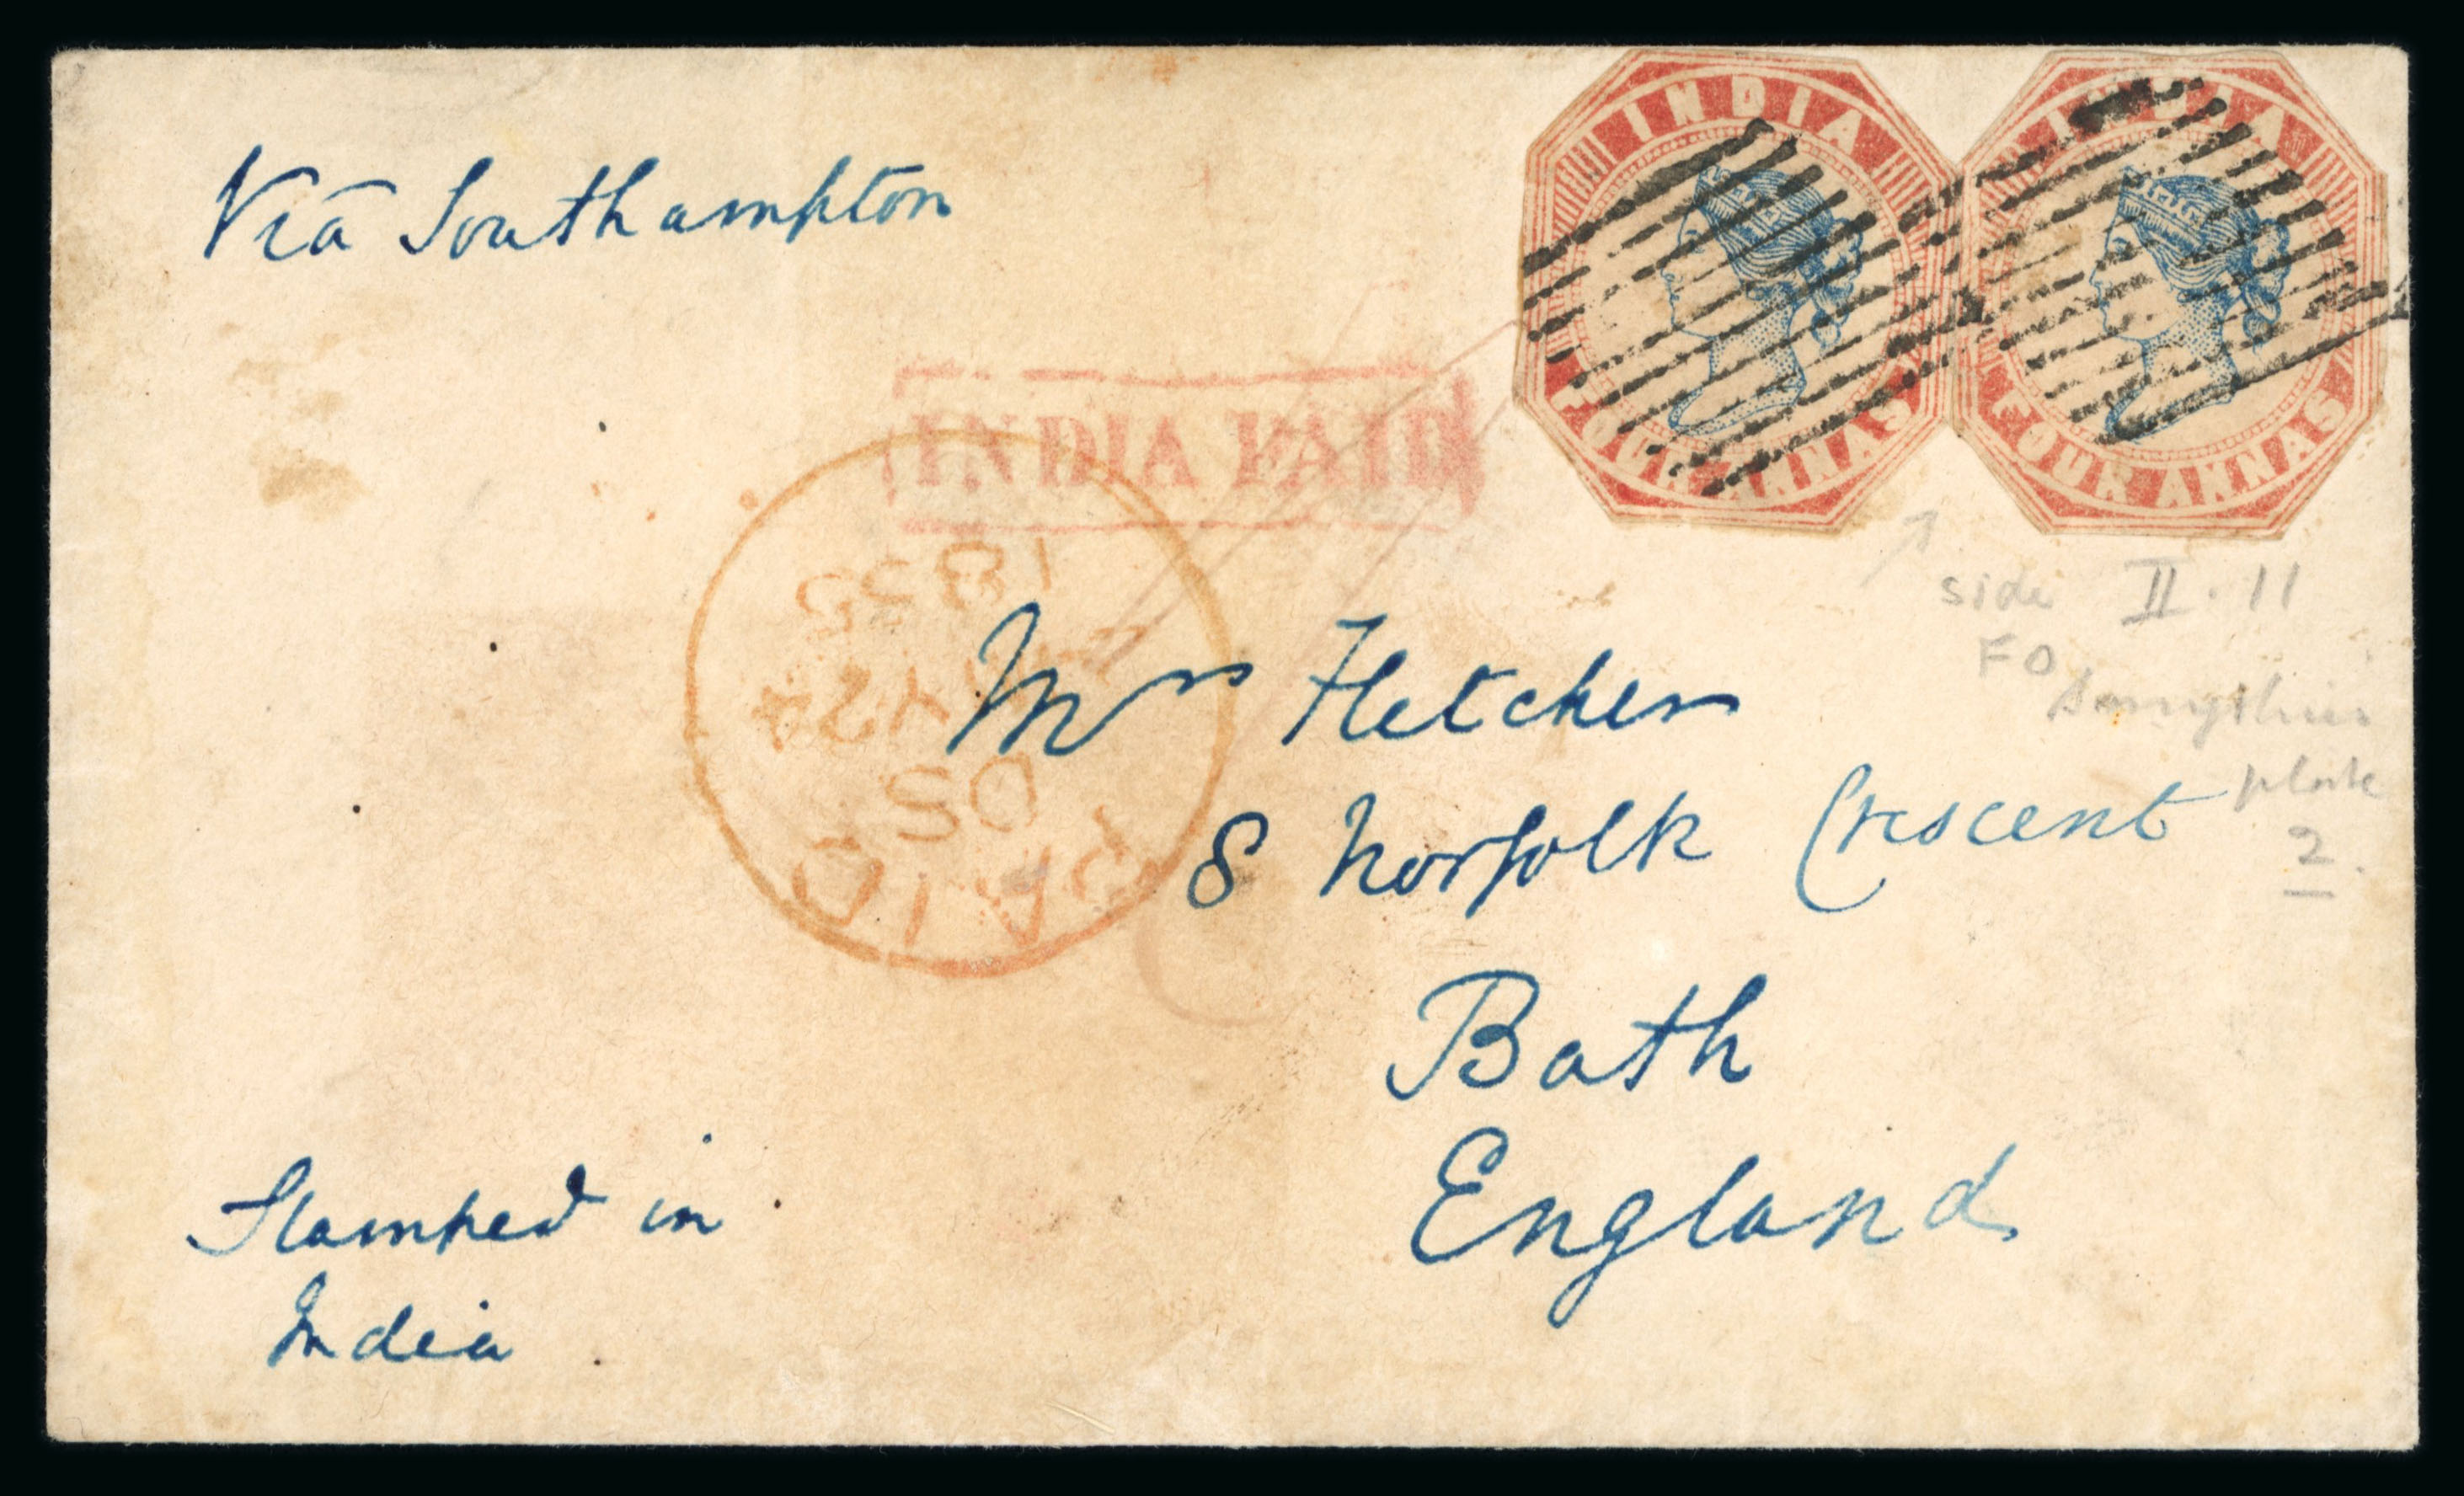 Via Southampton
INDIA
FOUR ANNAS
INDIA
FOUR ANNAS
INDIA PAID
PAID
DS
24
1855
side II. 11
FO
plate
2.
Mrs Fletcher
8 Norfolk Crescent
Bath
England
Stamped in
India